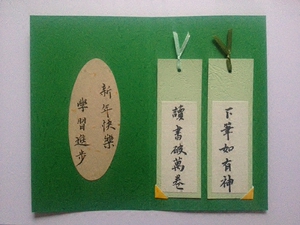 新年快樂
學習進步
讀書破萬卷
下筆如有神